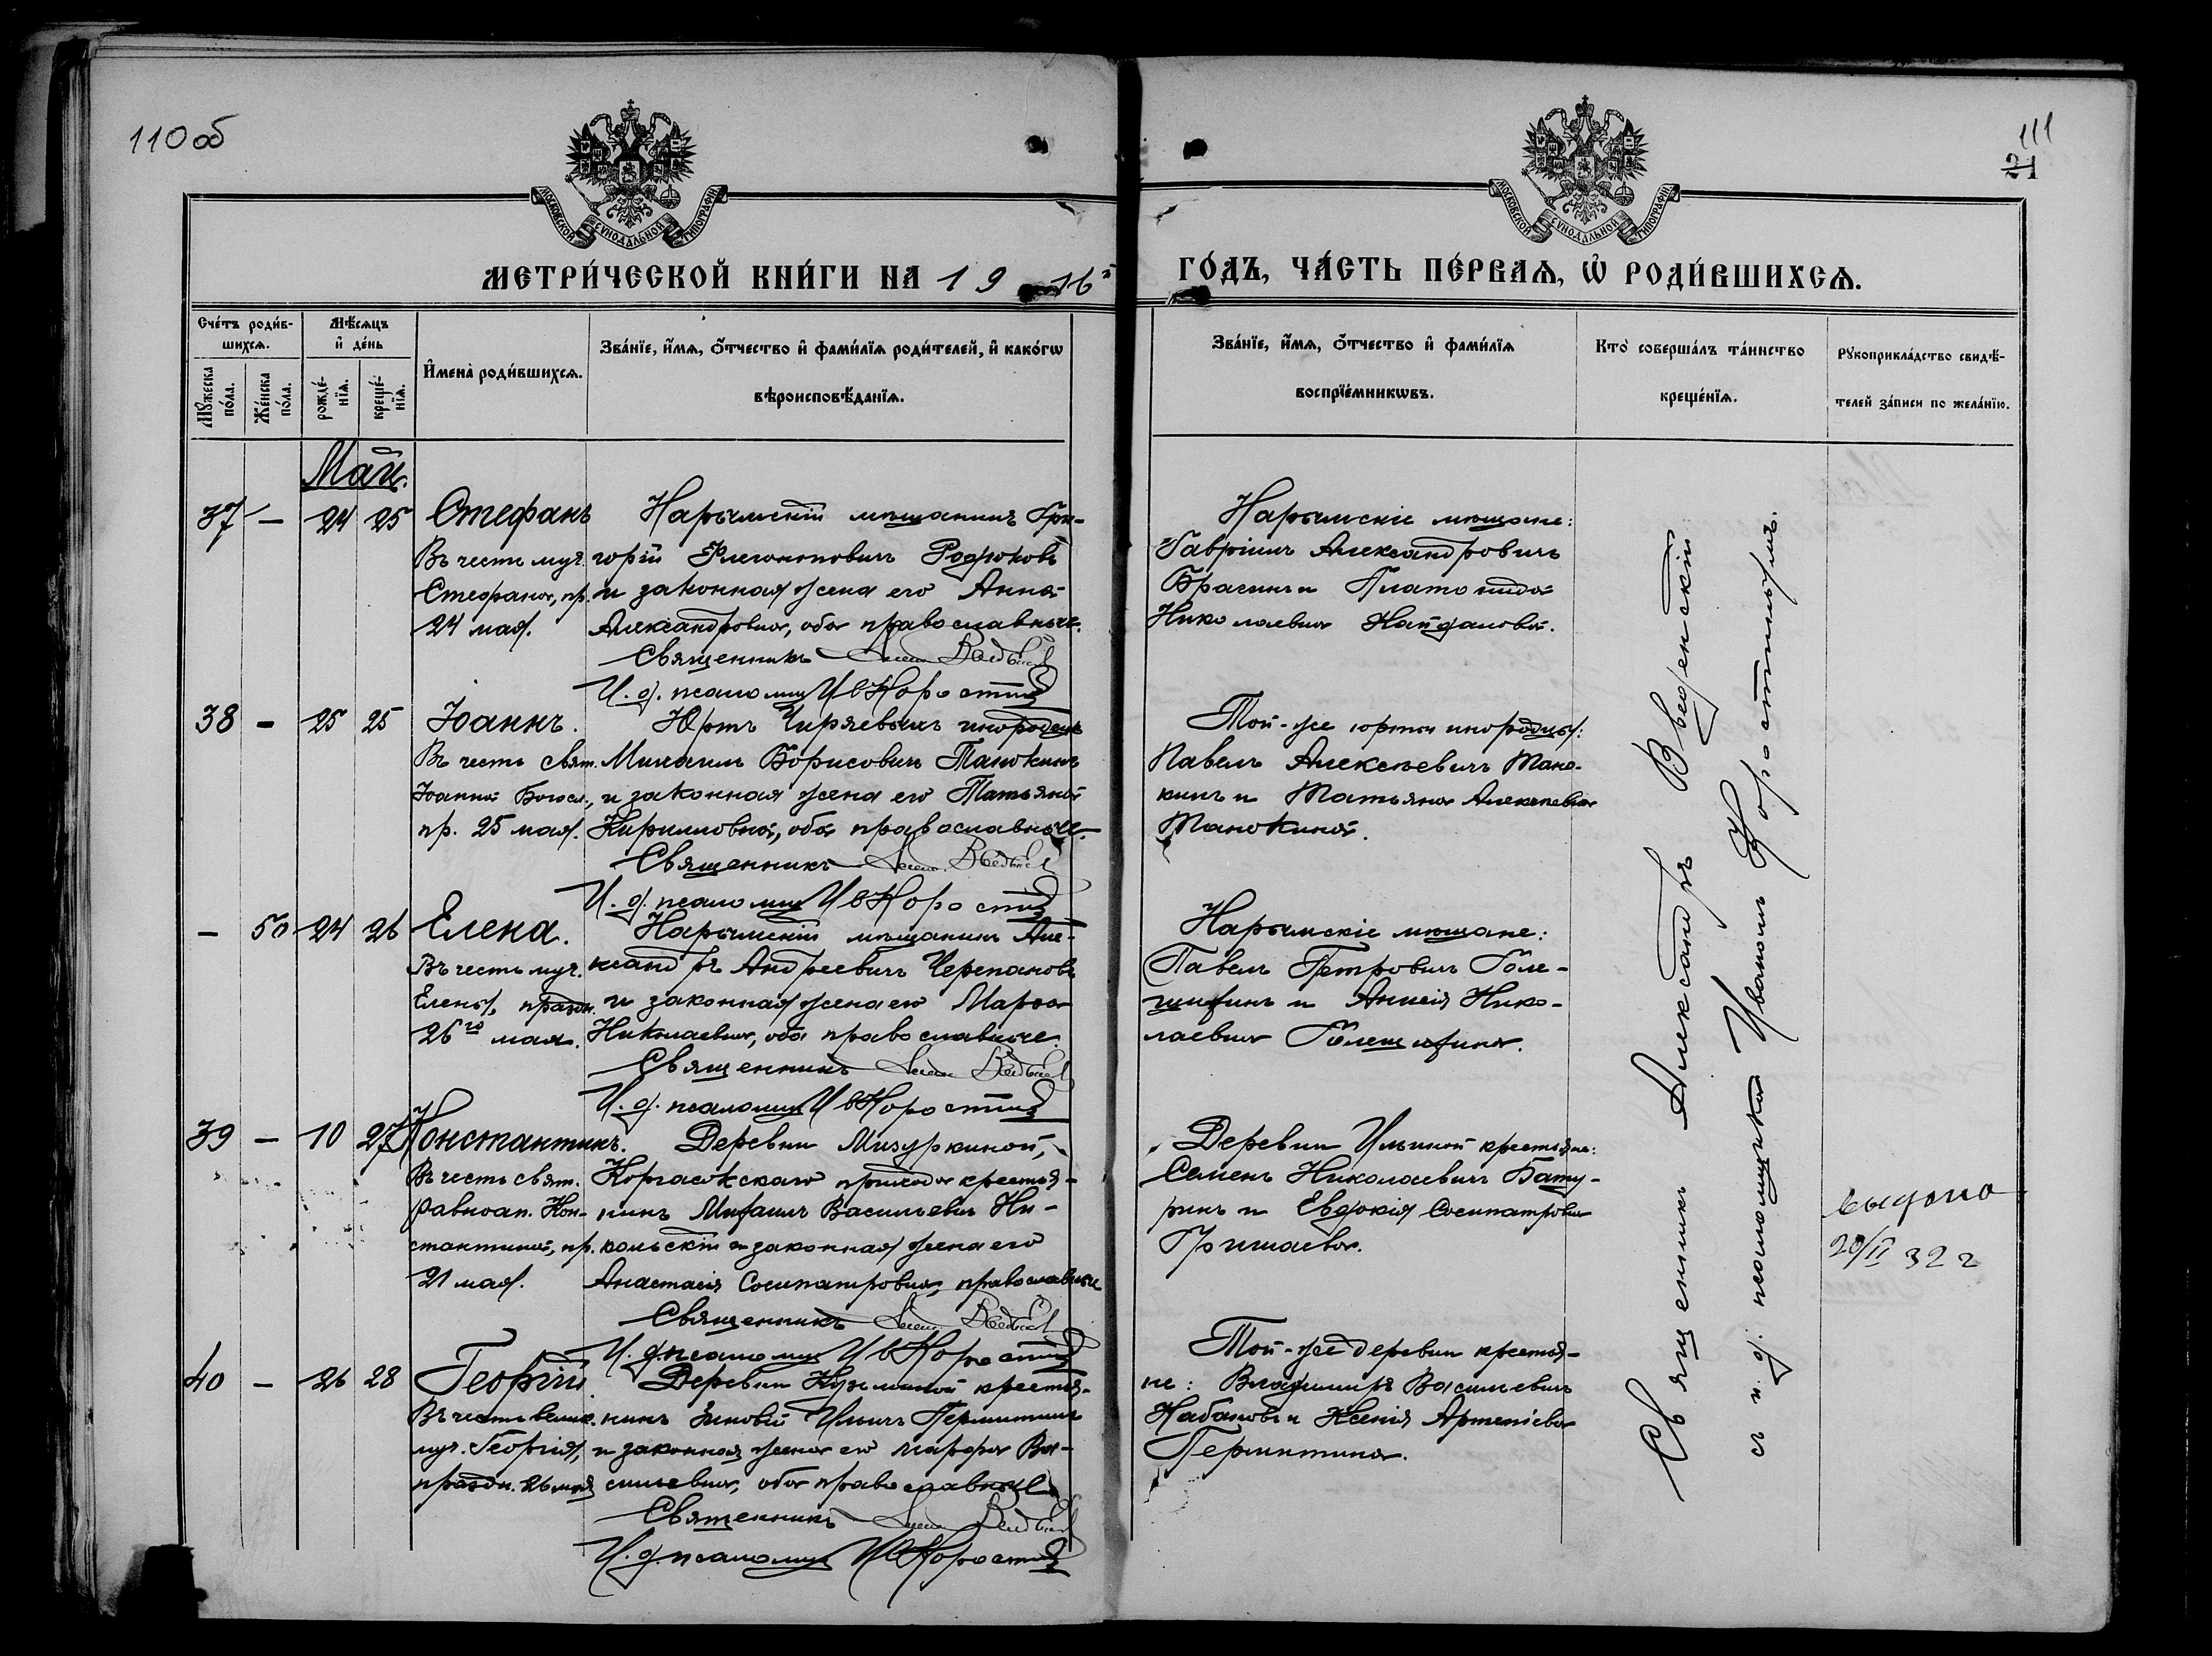 110 об
111
21
МОСКОВСКОЙ СѴНОДАЛЬНОЙ ТИПОГРАФІИ
МОСКОВСКОЙ СѴНОДАЛЬНОЙ ТИПОГРАФІИ
МЕТРИ́ЧЕСКОЙ КНИ́ГИ НА 1916й ГО́ДЪ, ЧА́СТЬ ПЕ́РВАѦ, Ѡ҆ РОДИ́ВШИХСѦ.
Сче́тъ роди́в-
шихсѧ.
Мꙋ́жеска по́ла.
Же́нска по́ла.
Мѣ́сѧцъ
и҆ де́нь
рожде́-
нїѧ.
креще́-
нїѧ.
И҆мена̀ роди́вшихсѧ.
Зва́нїе, и҆́мѧ, ѻ҆́тчество и҆ фами́лїѧ роди́телей, и҆ како́гѡ
вѣроисповѣ́данїѧ.
Зва́нїе, и҆́мѧ, ѻ҆́тчество и҆ фами́лїѧ
воспрїе́мникѡвъ.
Кто̀ соверша́лъ та́инство
креще́нїѧ.
Рꙋкоприкла́дство свидѣ́-
телей за́писи по жела́нїю.
Май.
37 — 24 25
Стефанъ
Въ честь муч.
Стефана, пр.
24 мая.
Нарымскій мѣщанинъ Гри-
горій Флегонтовичъ Родюковъ
и законная жена его Анна
Александровна, оба православные.
Священникъ
И. д. псаломщ. Ив Коростин
Нарымскіе мѣщане:
Гавріилъ Александровичъ
Брагинъ и Платонида
Николаевна Найданова.
38 — 25 25
Іоаннъ.
Въ честь свят.
Іоанна Богосл.,
пр. 25 мая.
Юртъ Чиряевыхъ инородецъ
Михаилъ Борисовичъ Танокинъ
и законная жена его Татьяна
Кирилловна, оба православные.
Священникъ
И. д. псаломщ. Ив Коростин
Той-же юрты инородцы:
Павелъ Алексѣевичъ Тано-
кинъ и Татьяна Алексѣевна
Танокина.
— 50 24 26
Елена.
Въ честь муч.
Елены, праздн.
26го мая.
Нарымскій мѣщанинъ Але-
ксандръ Андреевичъ Черепановъ
и законная жена его Марѳа
Николаевна, оба православные.
Священникъ
И. д. псаломщ. Ив Коростин
Нарымскіе мѣщане:
Павелъ Петровичъ Голе-
щихинъ и Анисія Нико-
лаевна Голещихина.
39 — 10 27
Константинъ.
Въ честь свят.
равноап. Кон-
стантина, пр.
21 мая.
Деревни Мизуркиной,
Каргасокскаго прихода крестья-
нинъ Михаилъ Васильевичъ Ни-
кольскій и законная жена его
Анастасія Сосипатровна, православные
Священникъ
И. д. псаломщ. Ив Коростин
Деревни Ильиной крестьяне:
Семенъ Николаевичъ Бату-
ринъ и Евдокія Сосипатровна
Гришаева.
выдано
20/II 32 г
40 — 26 28
Георгій.
Въ честь велик.
муч. Георгія,
праздн. 26 мая
Деревни Кузьминой крестья-
нинъ Зиновій Ильичъ Пермитинъ
и законная жена его Марѳа Ва-
сильевна, оба православные
Священникъ
И. д. псаломщ. Ив Коростин
Той-же деревни крестья-
не: Владиміръ Васильевичъ
Кабановъ и Ксенія Артеміева
Пермитина.
Священникъ Александръ Введенскій
съ и. д. псаломщика Иваномъ Коростинымъ.